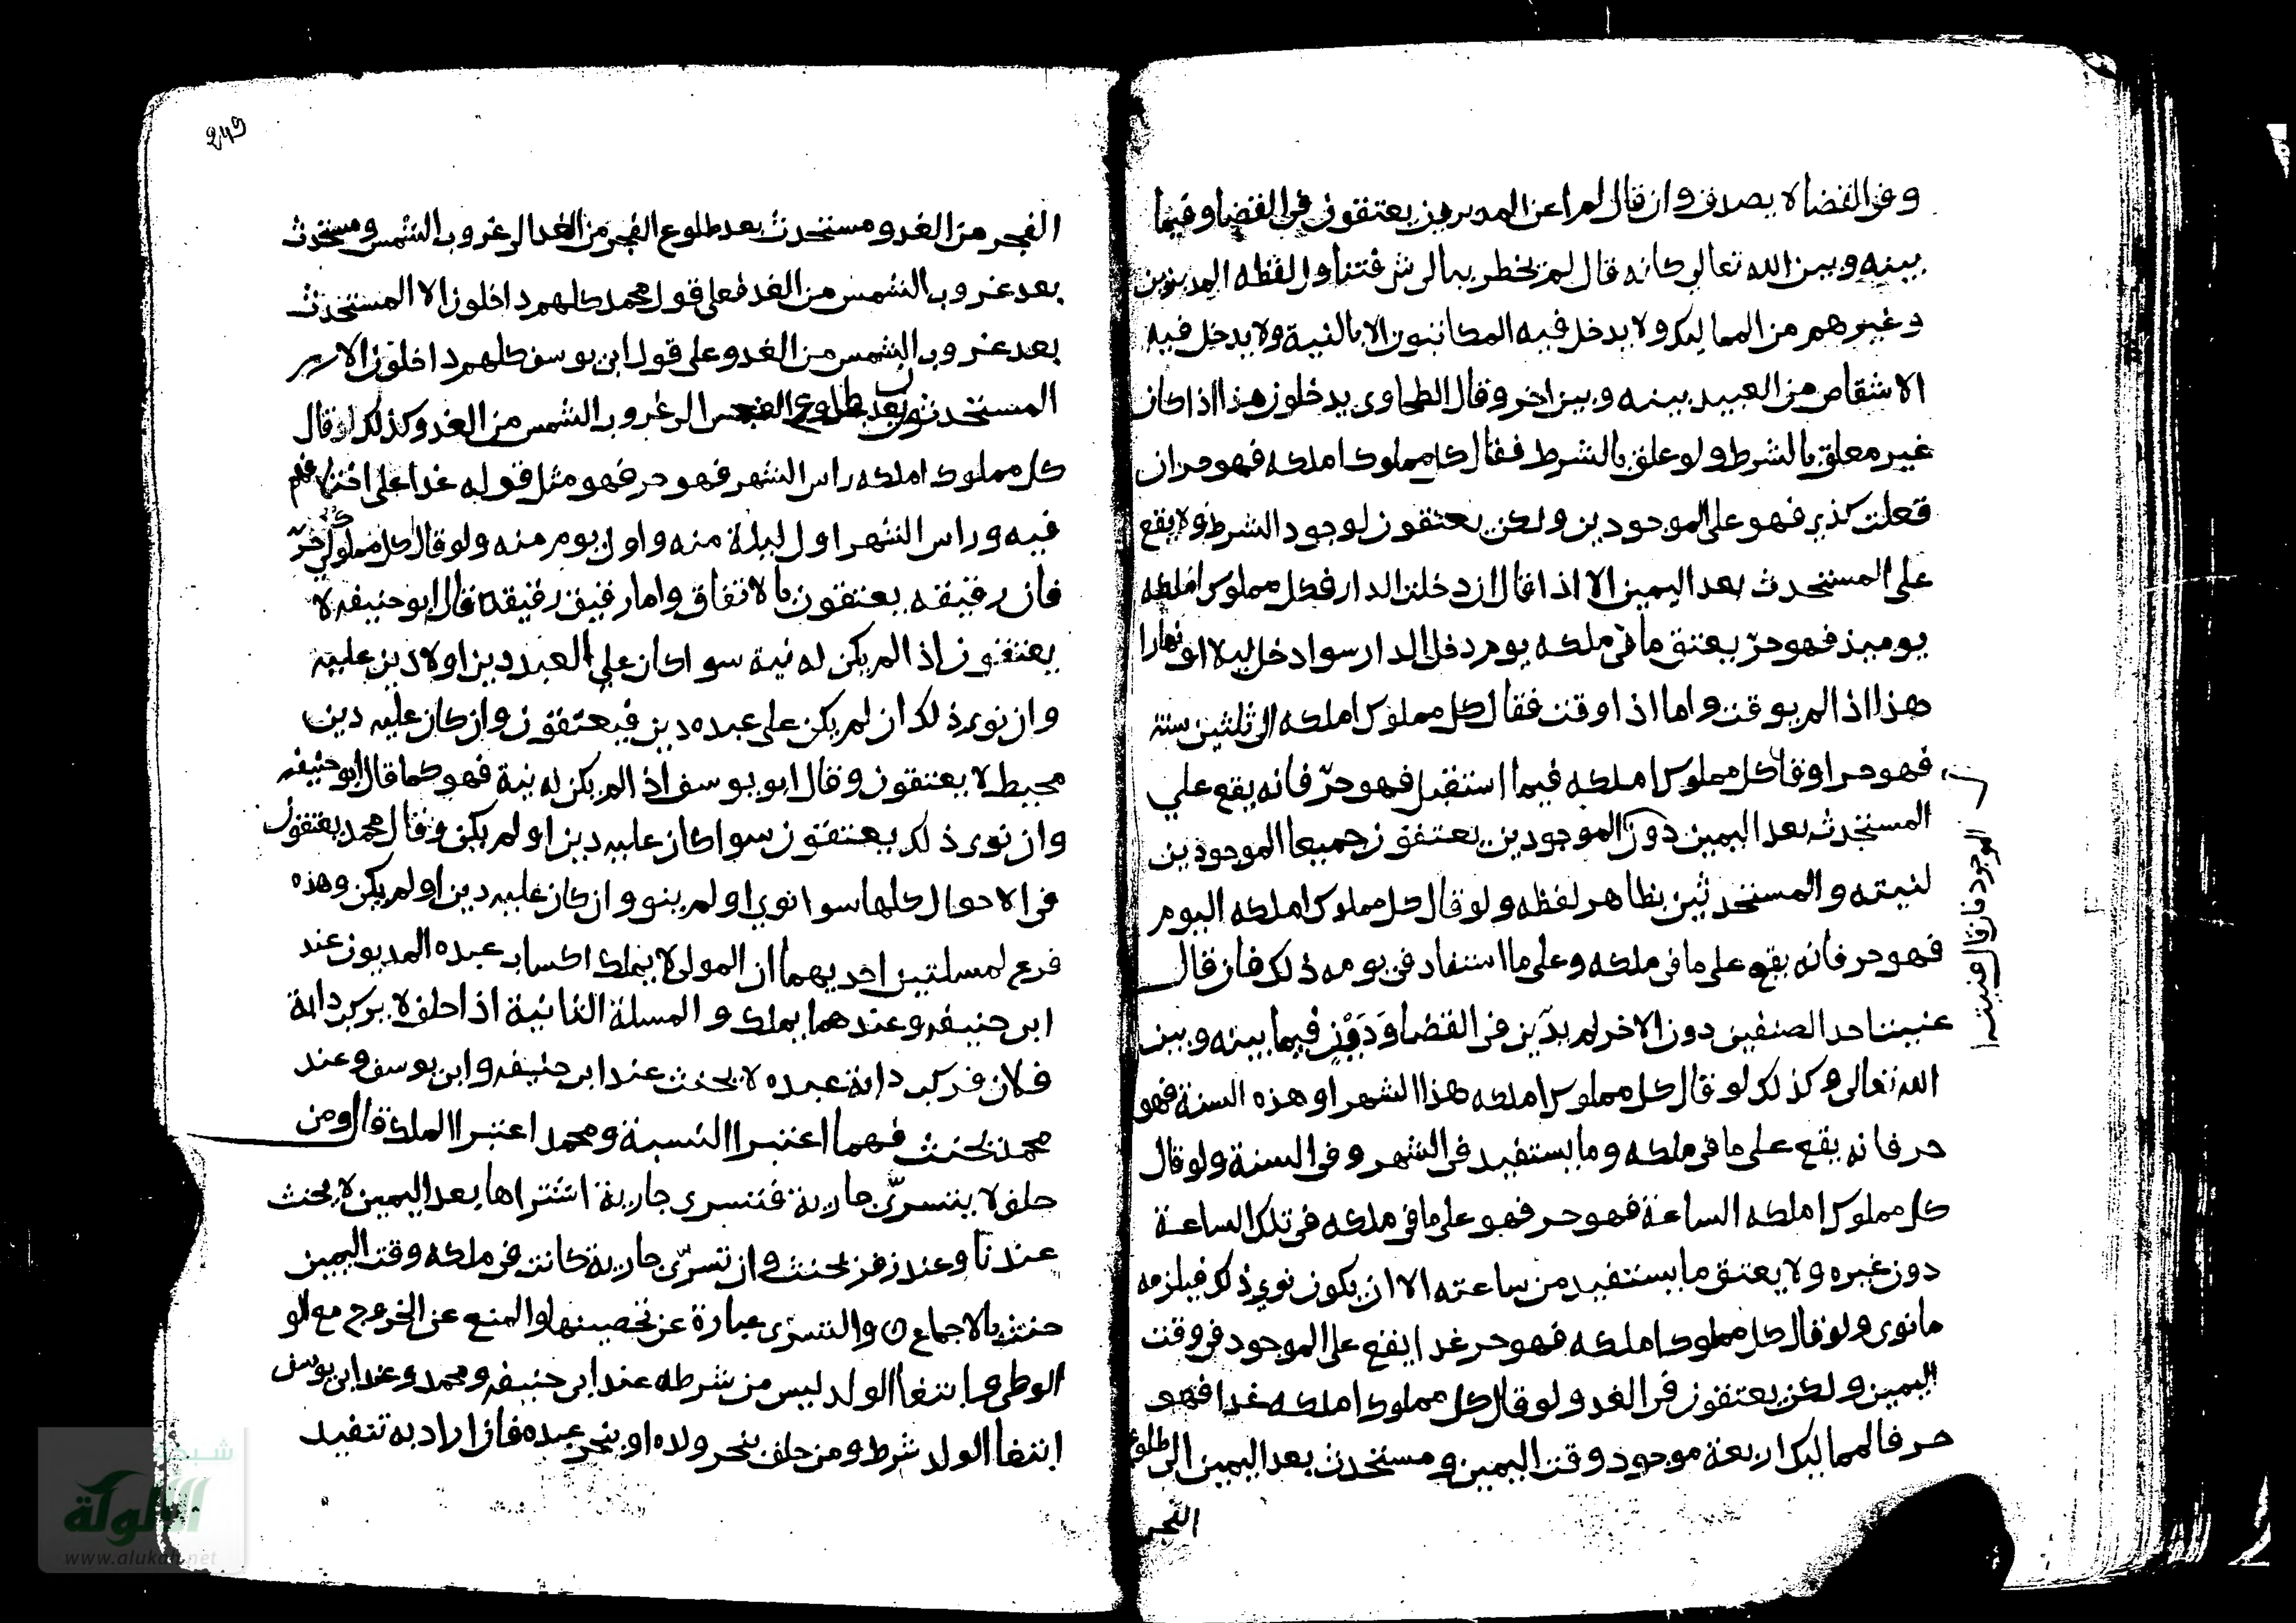 وفى القضا لا يصدق وان قال لم اعن المدبرين يعتقون فى القضا وفيما
بينه وبين الله تعالى كانه قال لم يخطر ببالى شى فتناول لفظه المديونين
وغيرهم من المماليك ولا يدخل فيه المكاتبون الا بالنية ولا يدخل فيه
الاشقاص من العبيد بينه وبين اخر وقال الطحاوى يدخلون هذا اذا كان
غير معلق بالشرط ولو علق بالشرط فقال كل مملوك املكه فهو حر ان
فعلت كذى فهو على الموجودين ولكن يعتقون لوجود الشرط ولا يقع
على المستحدث بعد اليمين الا اذا قال ان دخلت الدار فكل مملوك املكه
يوميذ فهو حرّ يعتق ما فى ملكه يوم دخل الدار سوا دخل ليلا او نهارا
هذا اذا لم يوقت واما اذا وقت فقال كل مملوك املكه الى ثلثين سنة
فهو حر او قال كل مملوك املكه فيما استقبل فهو حرّ فانه يقع علي
المستحدث بعد اليمين دون الموجودين يعتقون جميعا الموجودين
لنيته والمستحدثين بظاهر لفظه ولو قال كل مملوك املكه اليوم
فهو حر فانه يقع على ما فى ملكه وعلى ما استفاد فى يومه ذلك فان قال
عنيت احد الصنفين دون الاخر لم يديّن فى القضا ودين فيما بينه وبين
الله تعالى وكذلك لو قال كل مملوك املكه هذا الشهر او هذه السنة فهو
حر فانه يقع على ما فى ملكه وما يستفيد فى الشهر وفى السنة ولو قال
كل مملوك املكه الساعة فهو حر فهو على ما فى ملكه فى تلك الساعة
دون غيره ولا يعتق ما يستفيد من ساعته الا ان يكون نوى ذلك فيلزمه
ما نوى ولو قال كل مملوك املكه فهو حر غدا يقع على الموجود فى وقت
اليمين ولكن يعتقون فى الغد ولو قال كل مملوك املكه غدا فهو
حر فالمماليك اربعة موجود وقت اليمين ومستحدث بعد اليمين الى طلوع
الفجر
الموجود فان قال عنيت
249
الفجر من الغد ومستحدث بعد طلوع الفجر من الغد الى غروب الشمس ومستحدث
بعد غروب الشمس من الغد فعلى قول محمد كلهم داخلون الا المستحدث
بعد غروب الشمس من الغد وعلى قول ابى يوسف كلهم داخلون الا
المستحدثون بعد طلوع الفجر الى غروب الشمس من الغد وكذلك لو قال
كل مملوك املكه راس الشهر فهو حر فهو مثل قوله غدا على اختلافهم
فيه وراس الشهر اول ليلة منه واول يوم منه ولو قال كل مملوك لي حرّ
فان رقيقه يعتقون بالاتفاق واما رقيق رقيقه قال ابو حنيفه لا
يعتقون اذا لم يكن له نية سوا كان على العبد دين او لا دين عليه
وان نوى ذلك ان لم يكن على عبده دين فيعتقون وان كان عليه دين
محيط لا يعتقون وقال ابو يوسف اذا لم يكن له نية فهو كما قال ابو حنيفه
وان نوى ذلك يعتقون سوا كان عليه دين او لم يكن وقال محمد يعتقون
فى الاحوال كلها سوا نوي او لم ينو وان كان عليه دين او لم يكن وهذه
فرع لمسلتين احديهما ان المولى لا يملك اكساب عبده المديون عند
ابى حنيفه وعندهما يملك والمسلة الثانية اذا حلف لا يركب دابة
فلان فركب دابة عبده لا يحنث عند ابى حنيفه وابى يوسف وعند
محمد يحنث فهما اعتبرا النسبة ومحمد اعتبر الملك قال ومن
حلف لا يتسرّى جارية فتسرى جارية اشتراها بعد اليمين لا يحنث
عندنا وعند زفر يحنث وان تسرّى جارية كانت فى ملكه وقت اليمين
حنث بالاجماع والتسرّى عبارة عن تحصينها والمنع عن الخروج مع الو
الوطى وابتغا الولد ليس من شرطه عند ابى حنيفه ومحمد وعند ابى يوسف
ابتغا الولد شرط ومن حلف بنحر ولده او بنحر عبده فان اراد به تنفيد
شبكة
الألوكة
www.alukah.net